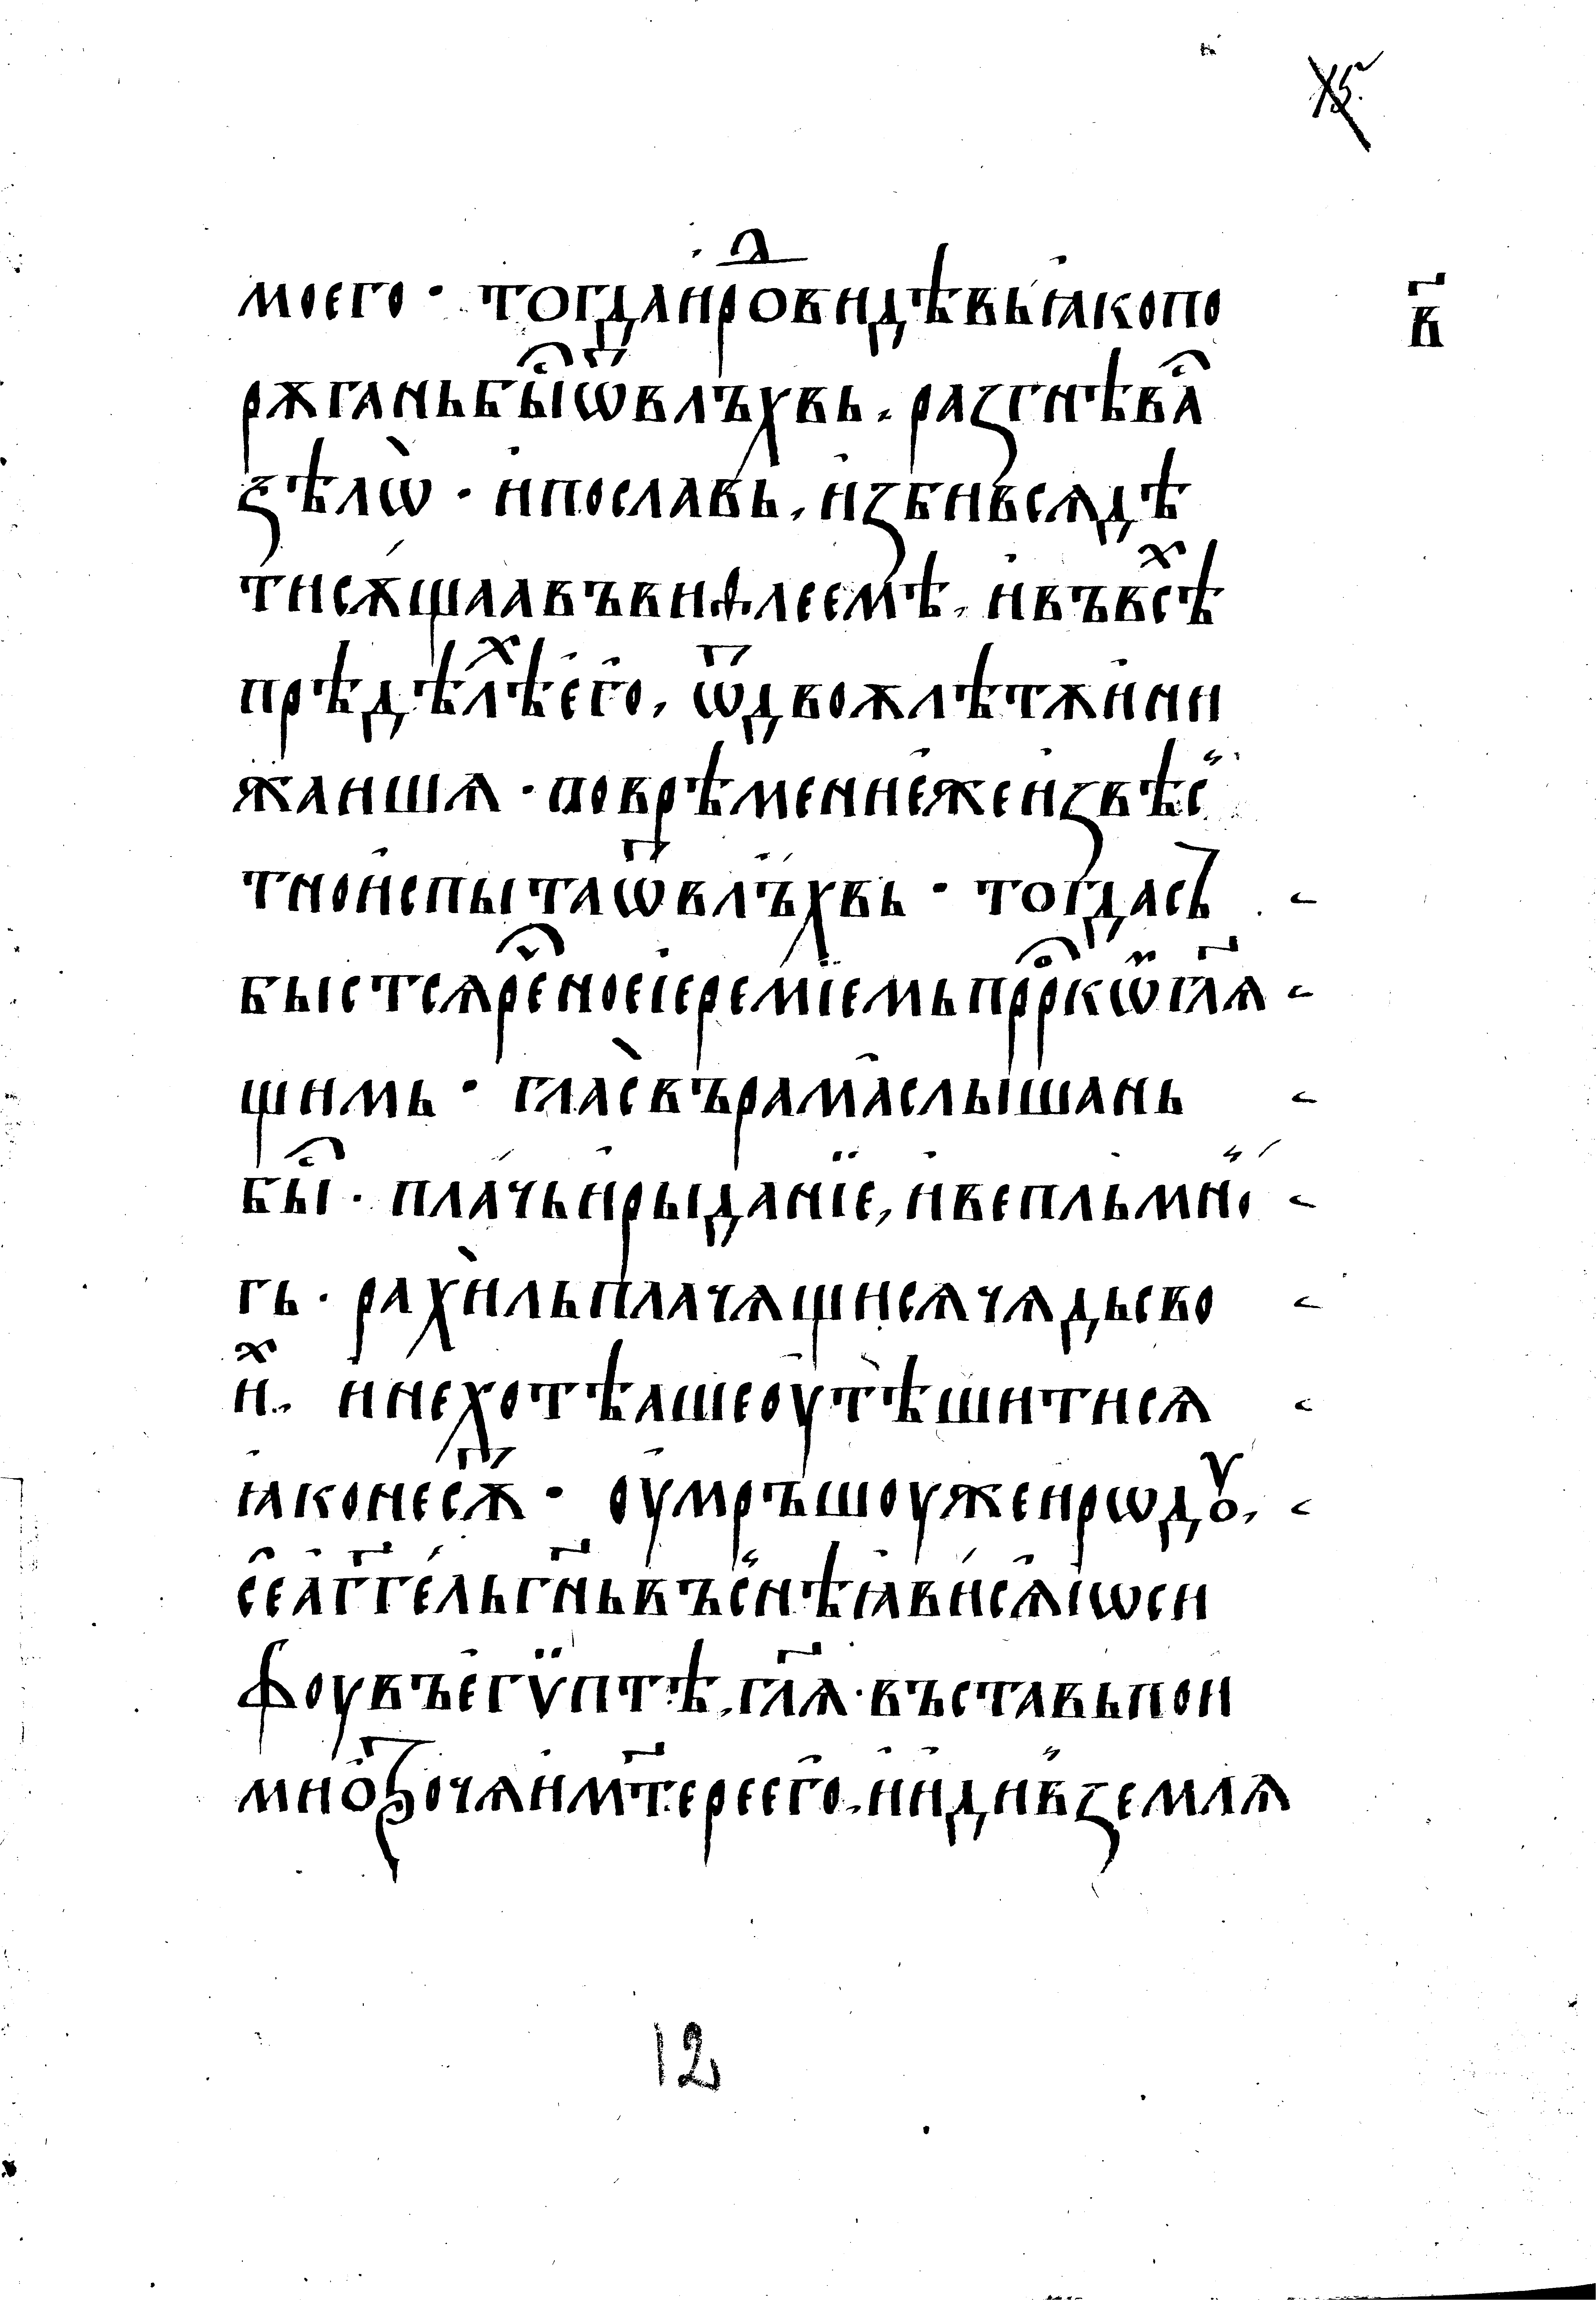 моего · тогдаиродⷣвидѣвьꙗкопо
в҃
рѫганьбыⷭ҇ѿвлъхвь, разгнѣваⷭ҇
ѕѣлѡ̀ · ипославь, избивсѧдѣ
тисѫщааавъвиѳлеемѣ, ивъвсѣⷯ
прѣдѣлѣⷯего, ѿдвоюлѣтѫини
жаишѧ · поврѣменнежеизвѣс
тноиспытаѿвлъхвь · тогдасъ
быстсѧреⷱ҇ноеіереміемьпрⷪ҇ркѡⷨгл҃ѧ
щимь · гласъ̀върамаслышань
быⷭ҇ · плачьирыданїе, ивепльмно
гь · рахи̑льплачѧщисѧчѧдьсво
иⷯ, инехотѣашеоутѣшитисѧ
ꙗконесѫⷮ · оумръшоужеирѡдоу,
сеаг҃гельгн҃ьвъснѣꙗвисѧіѡси
фоувъегѵ̈птѣ, гл҃ѧ · въставьпои
миотрочѧимт҃ереего, иидивземлѧ
12